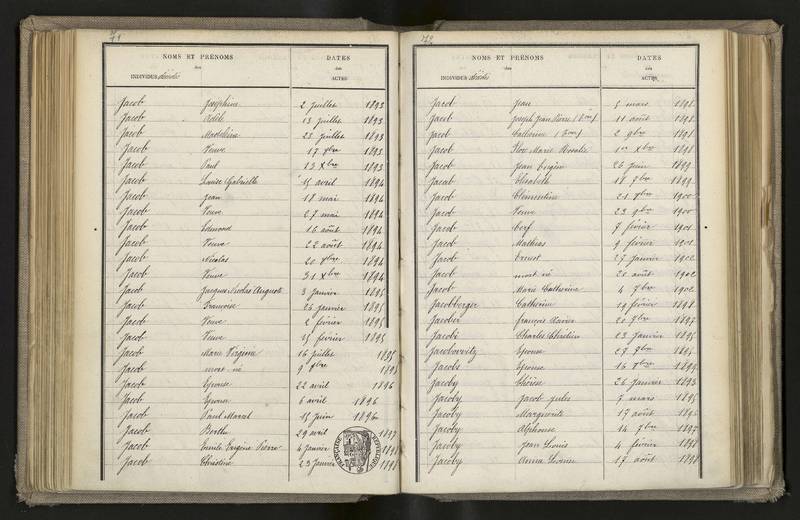 71
NOMS ET PRÉNOMS
des
INDIVIDUS décédés
DATES
des
ACTES
Jacob Joséphine 2 Juillet 1893
Jacob Adèle 13 Juillet 1893
Jacob Madeleine 28 Juillet 1893
Jacob Veuve 17 7bre 1893
Jacob Paul 13 Xbre 1893
Jacob Louise Gabrielle 15 avril 1894
Jacob Jean 18 mai 1894
Jacob Veuve 27 mai 1894
Jacob Edmond 16 août 1894
Jacob Veuve 22 août 1894
Jacob Nicolas 20 1894
Jacob Veuve 31 Xbre 1894
Jacob Jacques Nicolas Auguste 3 Janvier 1895
Jacob Françoise 26 Janvier 1895
Jacob Veuve 2 février 1895
Jacob Veuve 15 février 1895
Jacob Marie Virginie 16 Juillet 1895
Jacob mort né 9 1895
Jacob Epouse 22 avril 1896
Jacob Epouse 6 avril 1896
Jacob Paul Marcel 15 Juin 1896
Jacob Berthe 29 avril 1897
Jacob Emile Eugène Pierre 4 Janvier 1898
Jacob Christine 23 Janvier 1898
72
NOMS ET PRÉNOMS
des
INDIVIDUS décédés
DATES
des
ACTES
Jacob Jean 5 mars 1898
Jacob Joseph Jean Pierre 11 août 1898
Jacob Catherine 2 9bre 1898
Jacob Marie Rosalie 1er Xbre 1898
Jacob Jean Eugène 26 Juin 1899
Jacob Elisabeth 18 1899
Jacob Clémentine 21 1900
Jacob Veuve 23 9bre 1900
Jacob Cerf 7 février 1901
Jacob Mathias 9 février 1901
Jacob Ernest 27 Janvier 1902
Jacob mort né 20 août 1902
Jacob Marie Catherine 4 1902
Jacobberger Catherine 19 février 1898
Jacober François Xavier 20 1897
Jacobi Charles Christian 23 Janvier 1895
Epouse 27 1895
Jacobs Epouse 16 1894
Jacoby Thérèse 26 Janvier 1893
Jacoby Jacob Jules 7 mars 1895
Jacoby Marguerite 17 août 1895
Jacoby Alphonse 14 1897
Jacoby Jean Louis 4 février 1898
Jacoby Anna Louise 17 août 1898